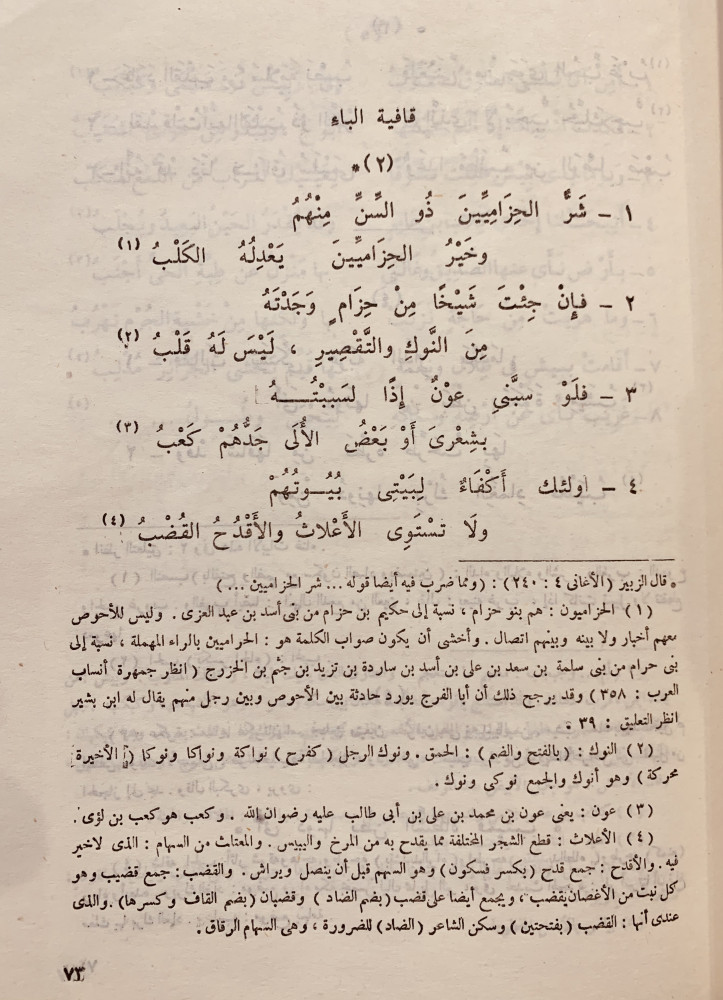 قافية الباء
(٢)*
١ - شَرُّ الحِزَامِيِّينَ ذُو السِّنِّ مِنْهُمُ
وخَيْرُ الحِزَاميِّينَ يَعْدِلُهُ الكَلْبُ (١)
٢ - فإِنْ جِئْتَ شَيْخًا مِنْ حِزَامٍ وَجَدْتَهُ
مِنَ النَّوكِ والتَّقْصِيرِ ، لَيْسَ لَهُ قَلْبُ (٢)
٣ - فلَوْ سبَّنىِ عوْنٌ إِذًا لسَببْتُــــهُ
بشِعْرىَ أَوْ بَعْضُ الأُلَى جَدُّهُمْ كَعْبُ (٣)
٤ - اولئك أَكْفَاءٌ لِبَيْتِى بُيُــوتُهُمْ
ولَا تسْتَوِى الأَعْلاثُ والأَقْدُحُ القُضْبُ (٤)
* قال الزبير (الأغانى ٤ : ٢٤٠) : (ومما ضرب فيه أيضا قوله ... شر الحزاميين ... )
(١) الحزاميون : هم بنو حزام ، نسبة إلى حكيم بن حزام من بنى أسد بن عبد العزى . وليس للأحوص
معهم أخبار ولا بينه وبينهم اتصال . وأخشى أن يكون صواب الكلمة هو : الحراميين بالراء المهملة ، نسبة إلى
بنى حرام من بنى سلمة بن سعد بن على بن أسد بن ساردة بن تزيد بن جشم بن الخزرج ( انظر جمهرة أنساب
العرب : ٣٥٨ ) وقد يرجح ذلك أن أبا الفرج يورد حادثة بين الأحوص وبين رجل منهم يقال له ابن بشير
انظر التعليق : ٣٩ .
(٢) النوك : ( بالفتح والضم ) : الحمق . ونوك الرجل ( كفرح ) نواكة ونواكا ونوكا ( الأخيرة
محركة ) وهو أنوك والجمع نوكى ونوك .
(٣) عون : يعنى عون بن محمد بن على بن أبى طالب عليه رضوان الله . وكعب هو كعب بن لؤى .
(٤) الأعلاث : قطع الشجر المختلفة مما يقدح به من المرخ واليبيس . والمعتلث من السهام : الذى لاخير
فيه . والأقدح : جمع قدح (بكسر فسكون) وهو السهم قبل أن ينصل ويراش . والقضب : جمع قضيب وهو
كل نبت من الأغصان يقضب ، ويجمع أيضا على قضب (بضم الضاد ) وقضبان (بضم القاف وكسرها) . والذى
عندى أنها : القضب (بفتحتين ) وسكن الشاعر (الضاد) للضرورة ، وهى السهام الرقاق .
٧٣